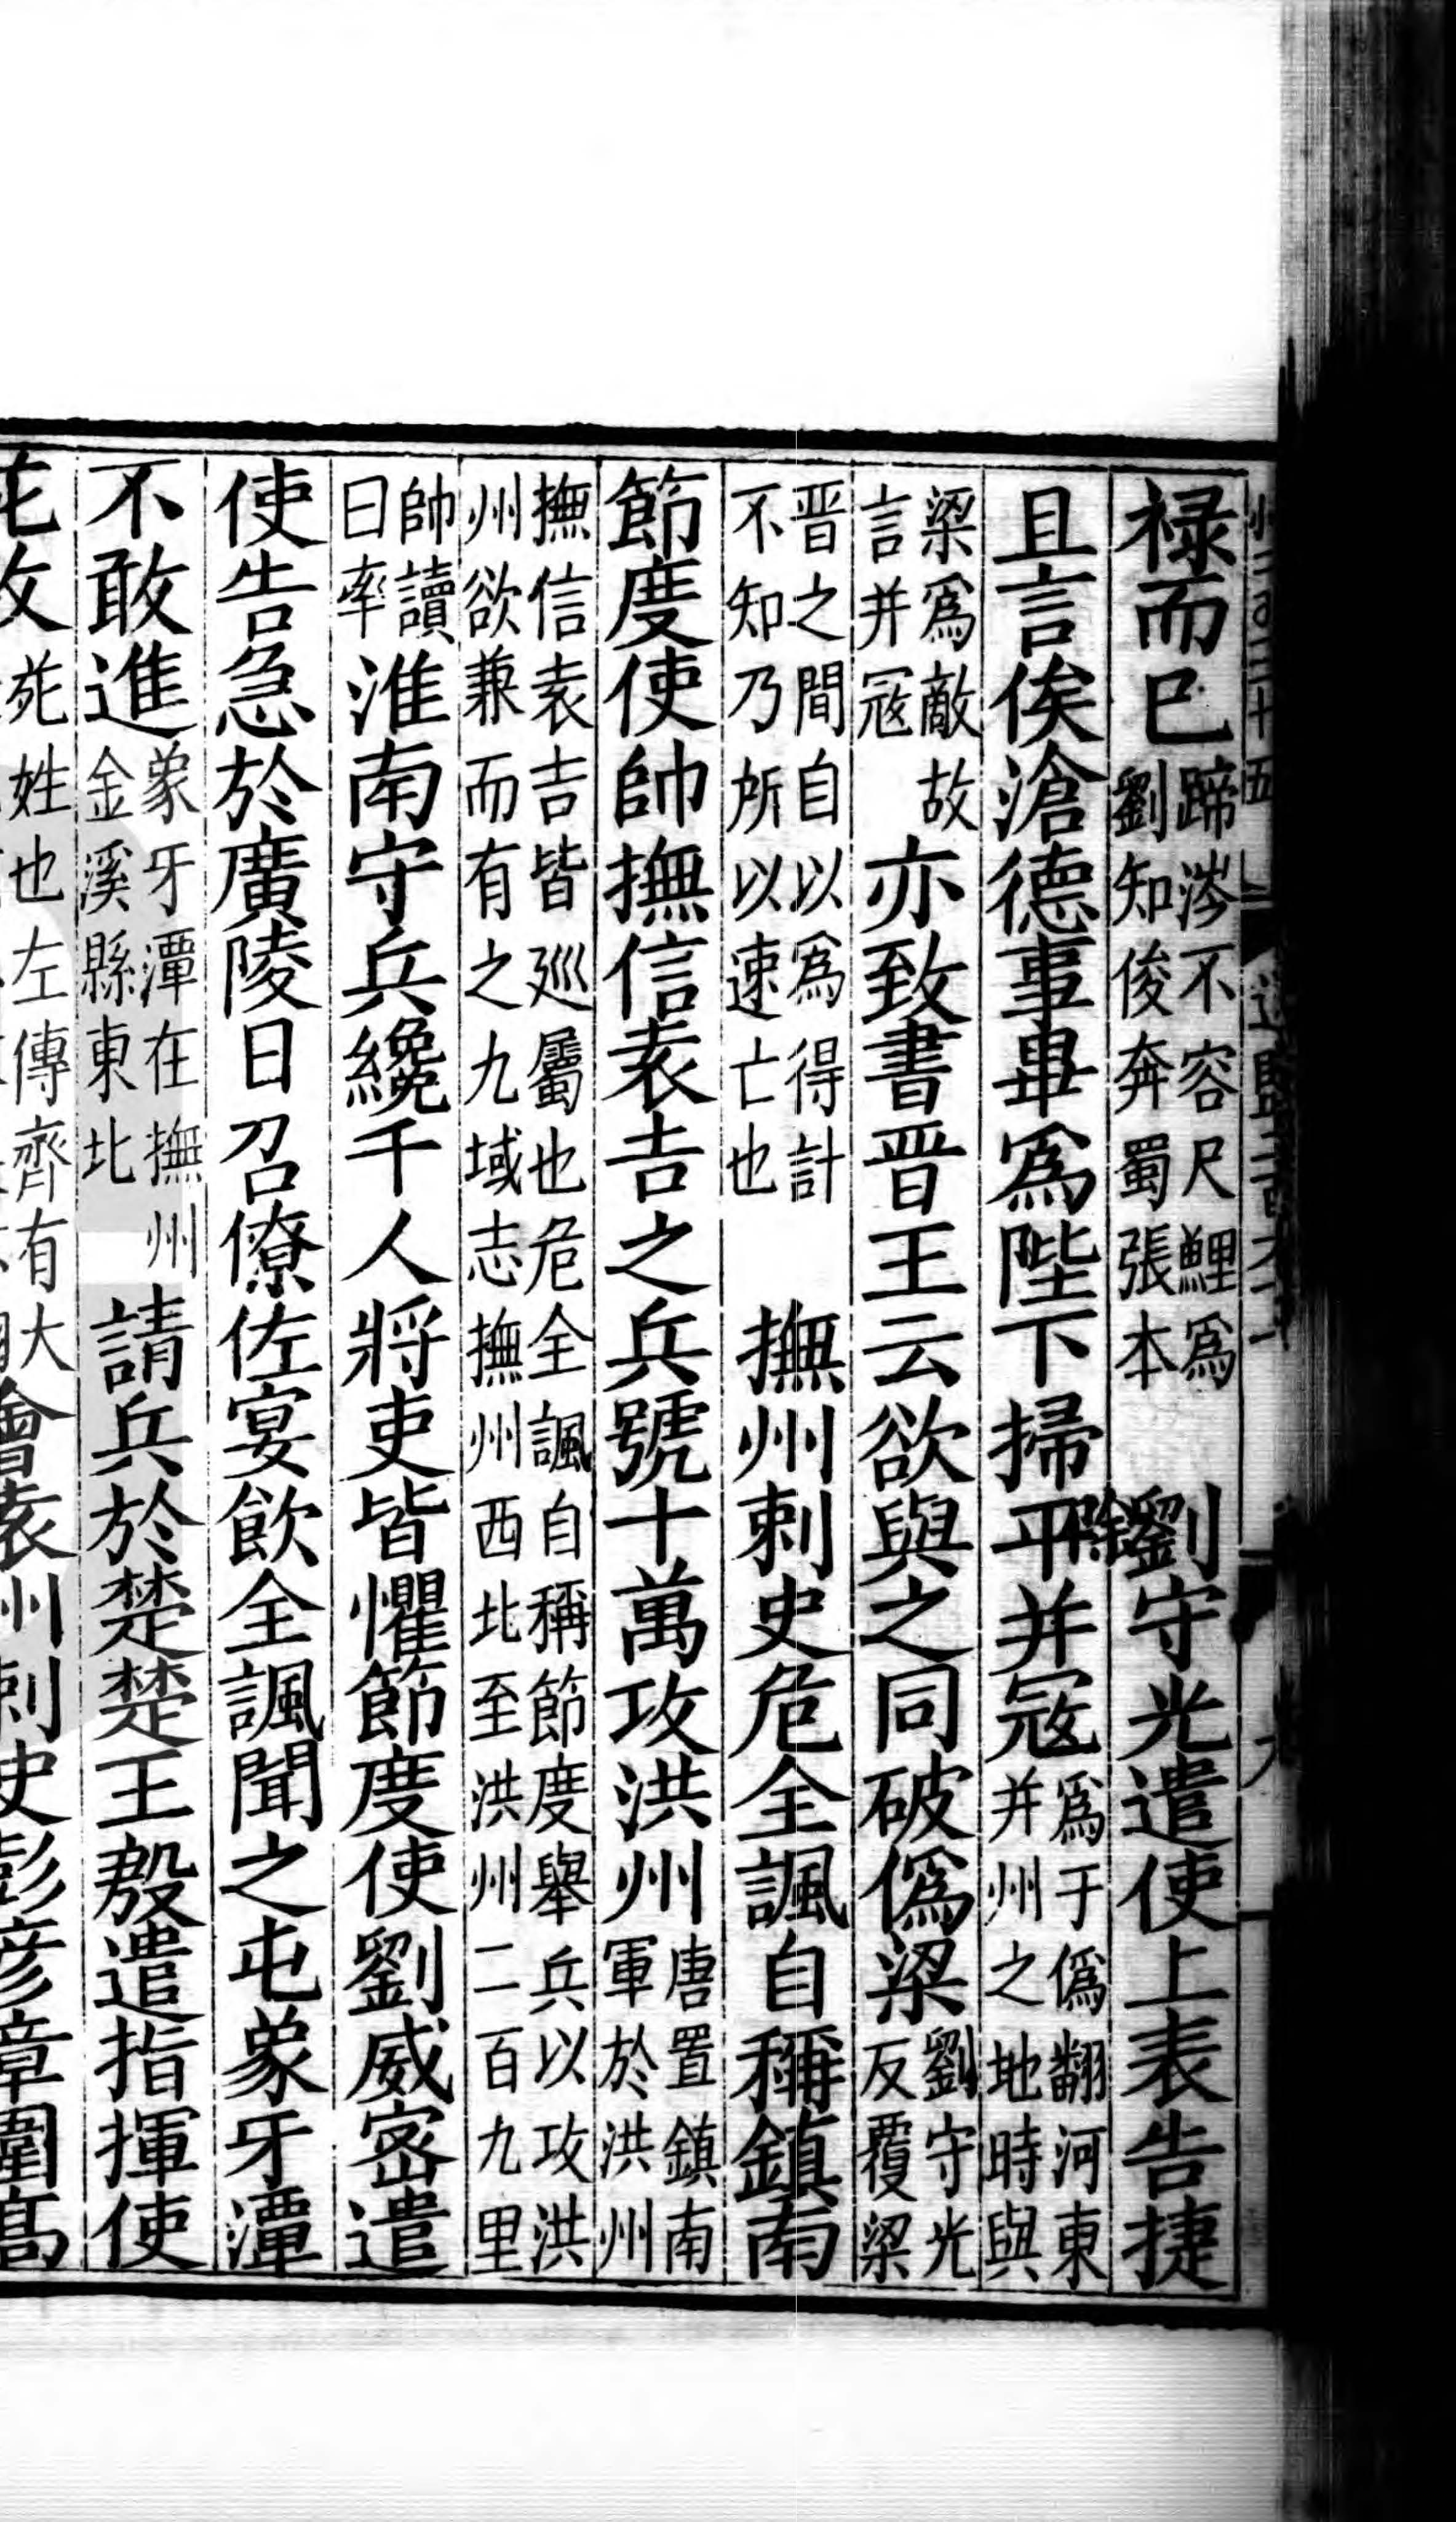 禄而巳蹄涔不容尺鯉爲劉知俊奔蜀張本劉守光遣使上表告捷
且言俟滄德事畢爲陛下掃平并冦爲于僞翻河東并州之地時與
梁爲敵故言并冦亦致書晋王云欲與之同破僞梁劉守光反覆梁
晋之間自以爲得計不知乃所以速亡也撫州刺史危全諷自稱鎮南
節度使帥撫信袁吉之兵號十萬攻洪州唐置鎮南軍於洪州
撫信袁吉皆廵屬也危全諷自稱節度舉兵以攻洪州欲兼而有之九域志撫州西北至洪州二百九里
帥讀曰率淮南守兵纔千人將吏皆懼節度使劉威宻遣
使告急於廣陵日召僚佐宴飲全諷聞之屯象牙潭
不敢進象牙潭在撫州金溪縣東北請兵於楚楚王殷遣指揮使
苑攻苑姓也左傳齊有大會袁州刺史彭彦章圍髙